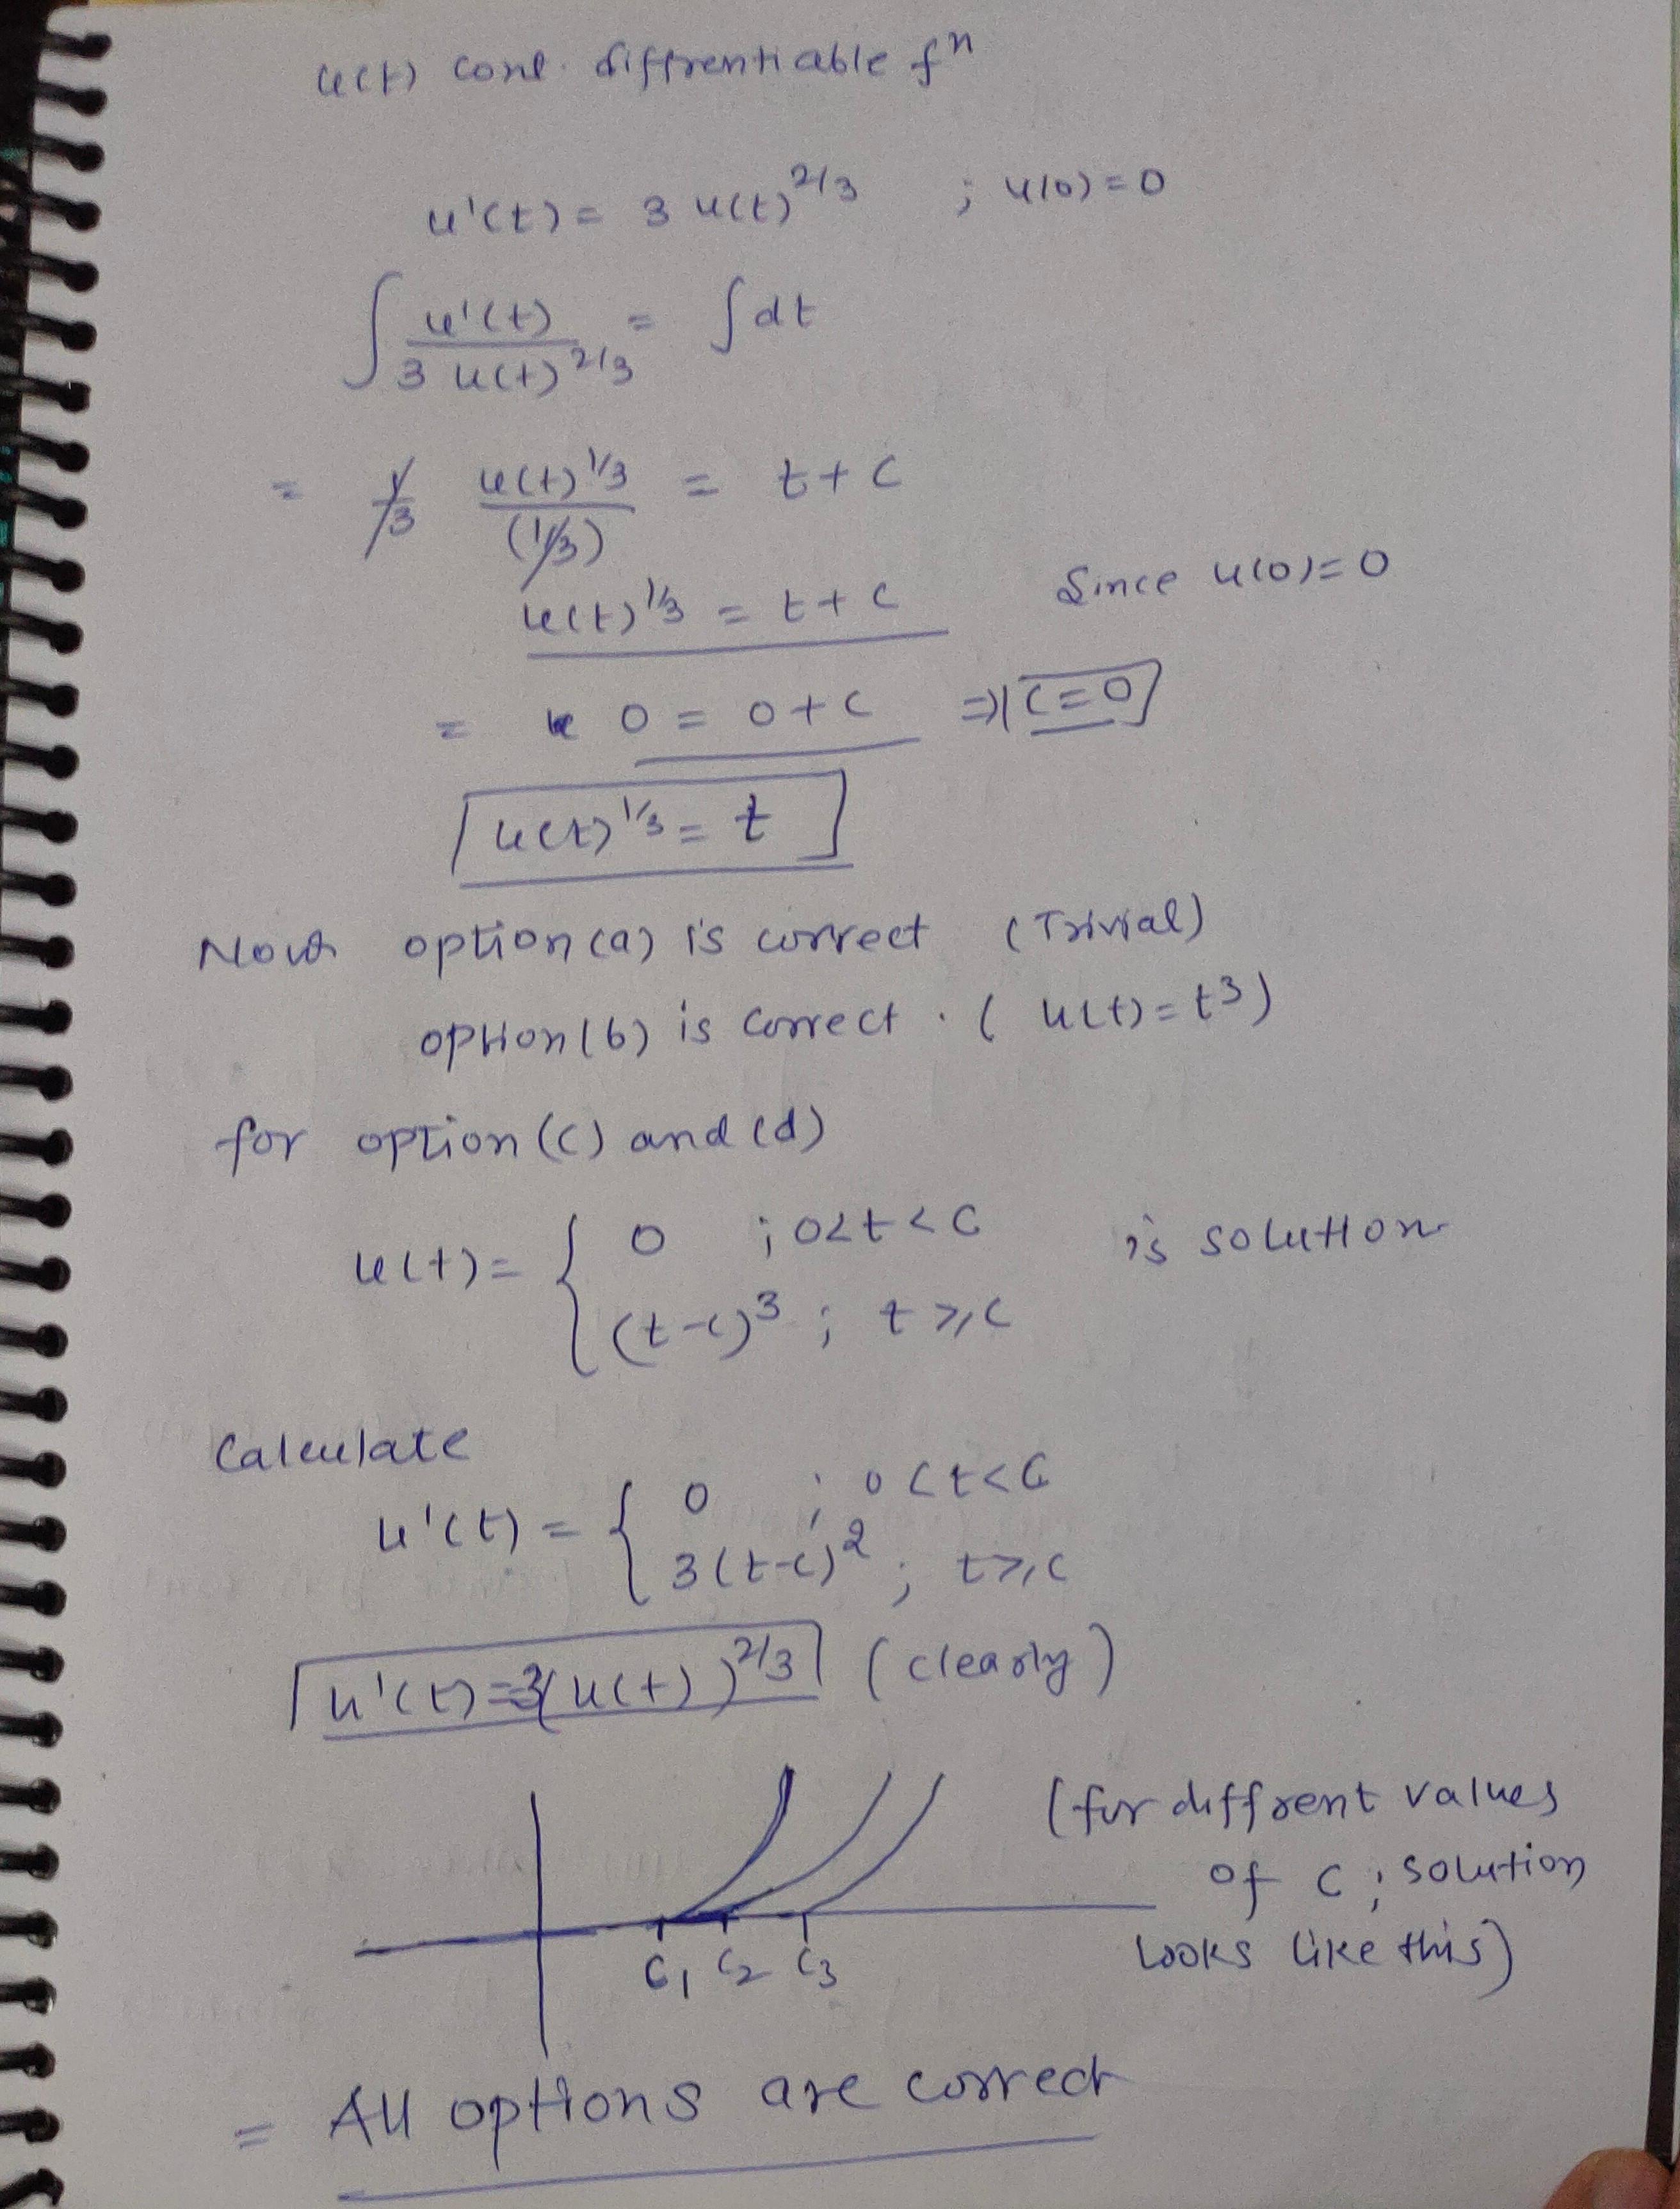 u(t) cont. diffrentiable fⁿ
u'(t) = 3 u(t)^2/3 ; u(0)=0
∫ u'(t) / 3 u(t)^2/3 = ∫dt
= 1/3 u(t)^1/3 / (1/3) = t + c
u(t)^1/3 = t + c Since u(0)=0
= 0 = 0 + c ⇒ c = 0
u(t)^1/3 = t
Now option (a) is correct (Trivial)
option (b) is correct. ( u(t) = t^3 )
for option (c) and (d)
u(t) = { 0 ; 0<t<c is solution
(t-c)^3 ; t ≥ c
Calculate
u'(t) = { 0 ; 0<t<c
3(t-c)^2 ; t ≥ c
u'(t) = 3(u(t))^2/3 (clearly)
(for diffrent values
of c ; solution
looks like this)
c1 c2 c3
= All options are correct